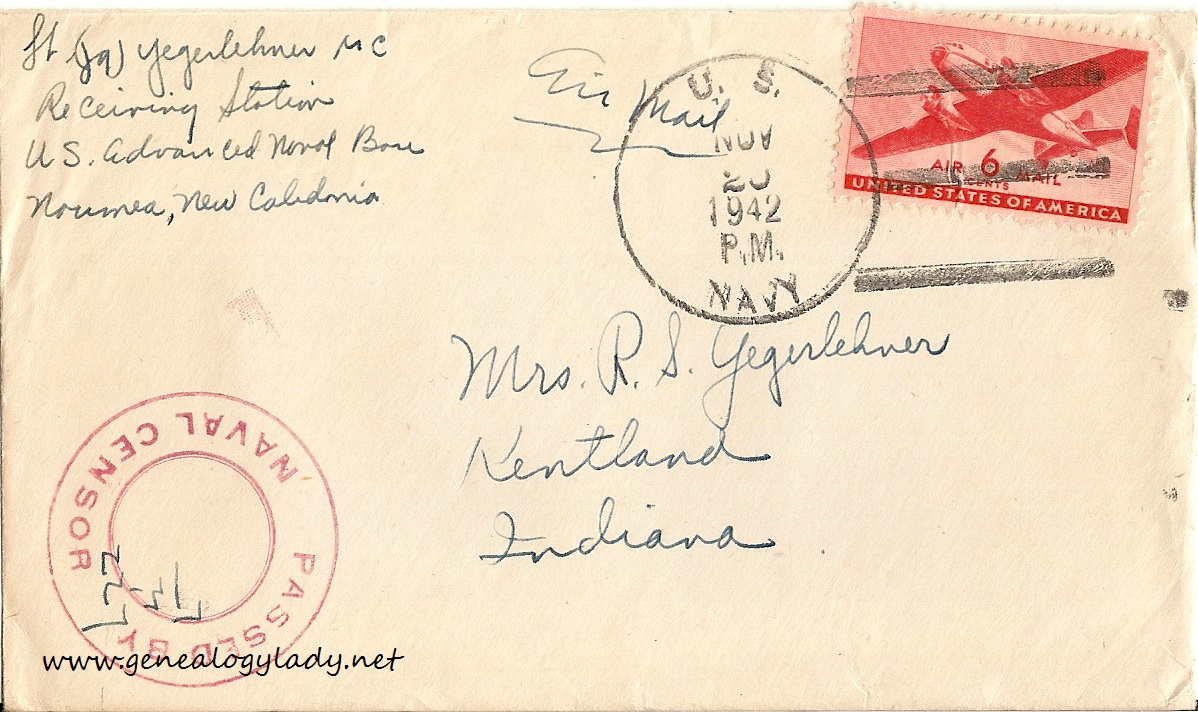 Lt (jg) Yegerlehner MC
Receiving Station
U.S. Advanced Naval Base
Noumea, New Caledonia
Air Mail
U. S.
NOV
20
1942
P.M.
NAVY
AIR 6 MAIL
CENTS
UNITED STATES OF AMERICA
Mrs. R. S. Yegerlehner
Kentland
Indiana
PASSED BY NAVAL CENSOR
www.genealogylady.net